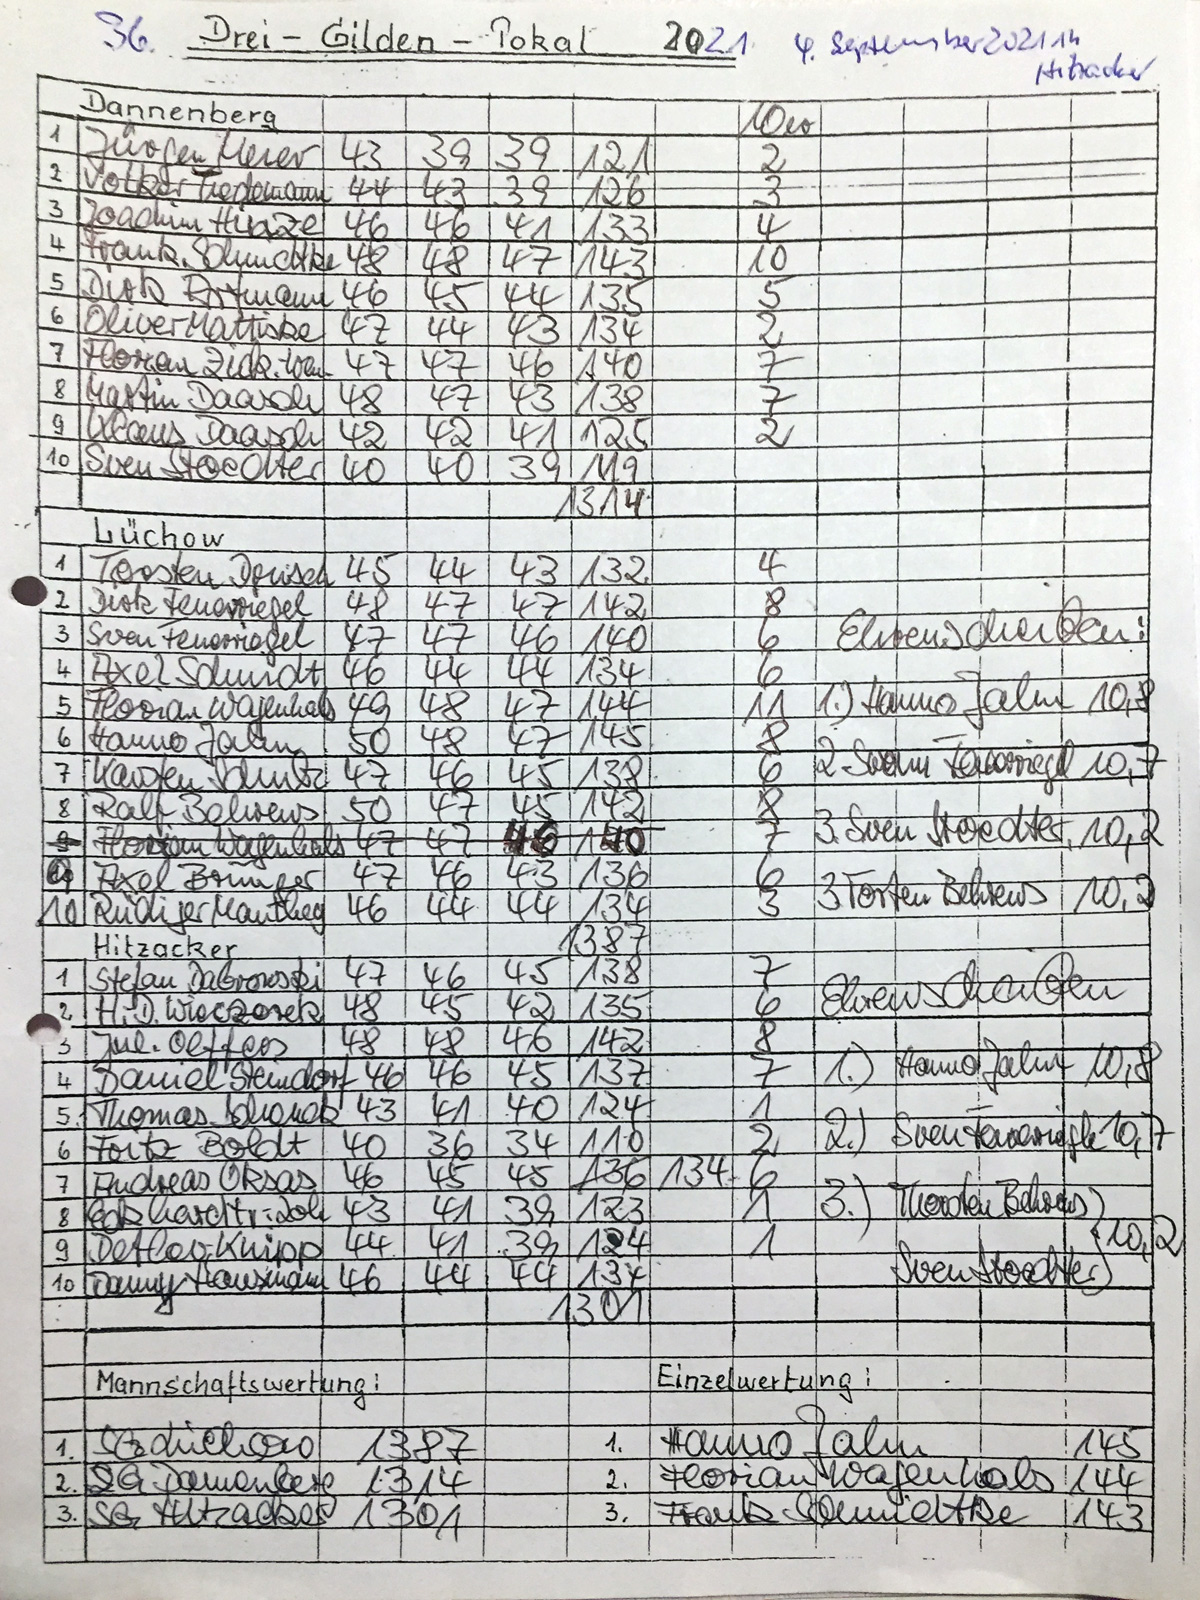 36. Drei-Gilden-Pokal 2021. 4. September 2021 in
Hitzacker
Dannenberg 10er
1 Jürgen Meier 43 39 39 121 2
2 Volker Tiedemann 44 43 39 126 3
3 Joachim Hinze 46 46 41 133 4
4 Frank Schmidtke 48 48 47 143 10
5 Dirk 46 45 44 135 5
6 Oliver Mattiske 47 44 43 134 2
7 Florian 47 47 46 140 7
8 Martin Daasch 48 47 43 138 7
9 Klaus Daasch 42 42 41 125 2
10 Sven Stoedter 40 40 39 119
1314
Lüchow
1 Torsten 45 44 43 132 4
2 Dirk Feuerriegel 48 47 47 142 8
3 Sven Feuerriegel 47 47 46 140 6 Ehrenscheiben:
4 Axel Schmidt 46 44 44 134 6
5 Florian Wagenhals 49 48 47 144 11 1.) Hanno Jahn 10,8
6 Hanno Jahn 50 48 47 145 8
7 Karsten Schultz 47 46 45 138 6 2. Sven Feuerriegel 10,7
8 Ralf Behrens 50 47 45 142 8
9 Florian Wagenhals 47 47 46 140 7 3. Sven Stoedter 10,2
9 Axel 47 46 43 136 6
10 Rüdiger Mautheg 46 44 44 134 3 3 Torsten Behrens 10,2
Hitzacker 1387
1 Stefan Dabrowski 47 46 45 138 7
2 H.D. Wieczorek 48 45 42 135 6 Ehrenscheiben
3 Jul. Oelffers 48 48 46 142 8
4 Daniel Steindorf 46 46 45 137 7 1.) Hanno Jahn 10,8
5. Thomas 43 41 40 124 1
6 Fritz Boldt 40 36 34 110 2 2.) Sven Feuerriegle 10,7
7 Andreas Oksas 46 45 45 136 134 6
8 43 41 39 123 1 3.) Thorsten Behrens
9 Detlev Knipp 44 41 39 124 1 10,2
10 Danny Hausmann 46 44 44 134 Sven Stoedter
1301
Mannschaftswertung: Einzelwertung:
1. SG Lüchow 1387 1. Hanno Jahn 145
2. SG Dannenberg 1314 2. Florian Wagenhals 144
3. SG Hitzacker 1301 3. Frank Schmidtke 143